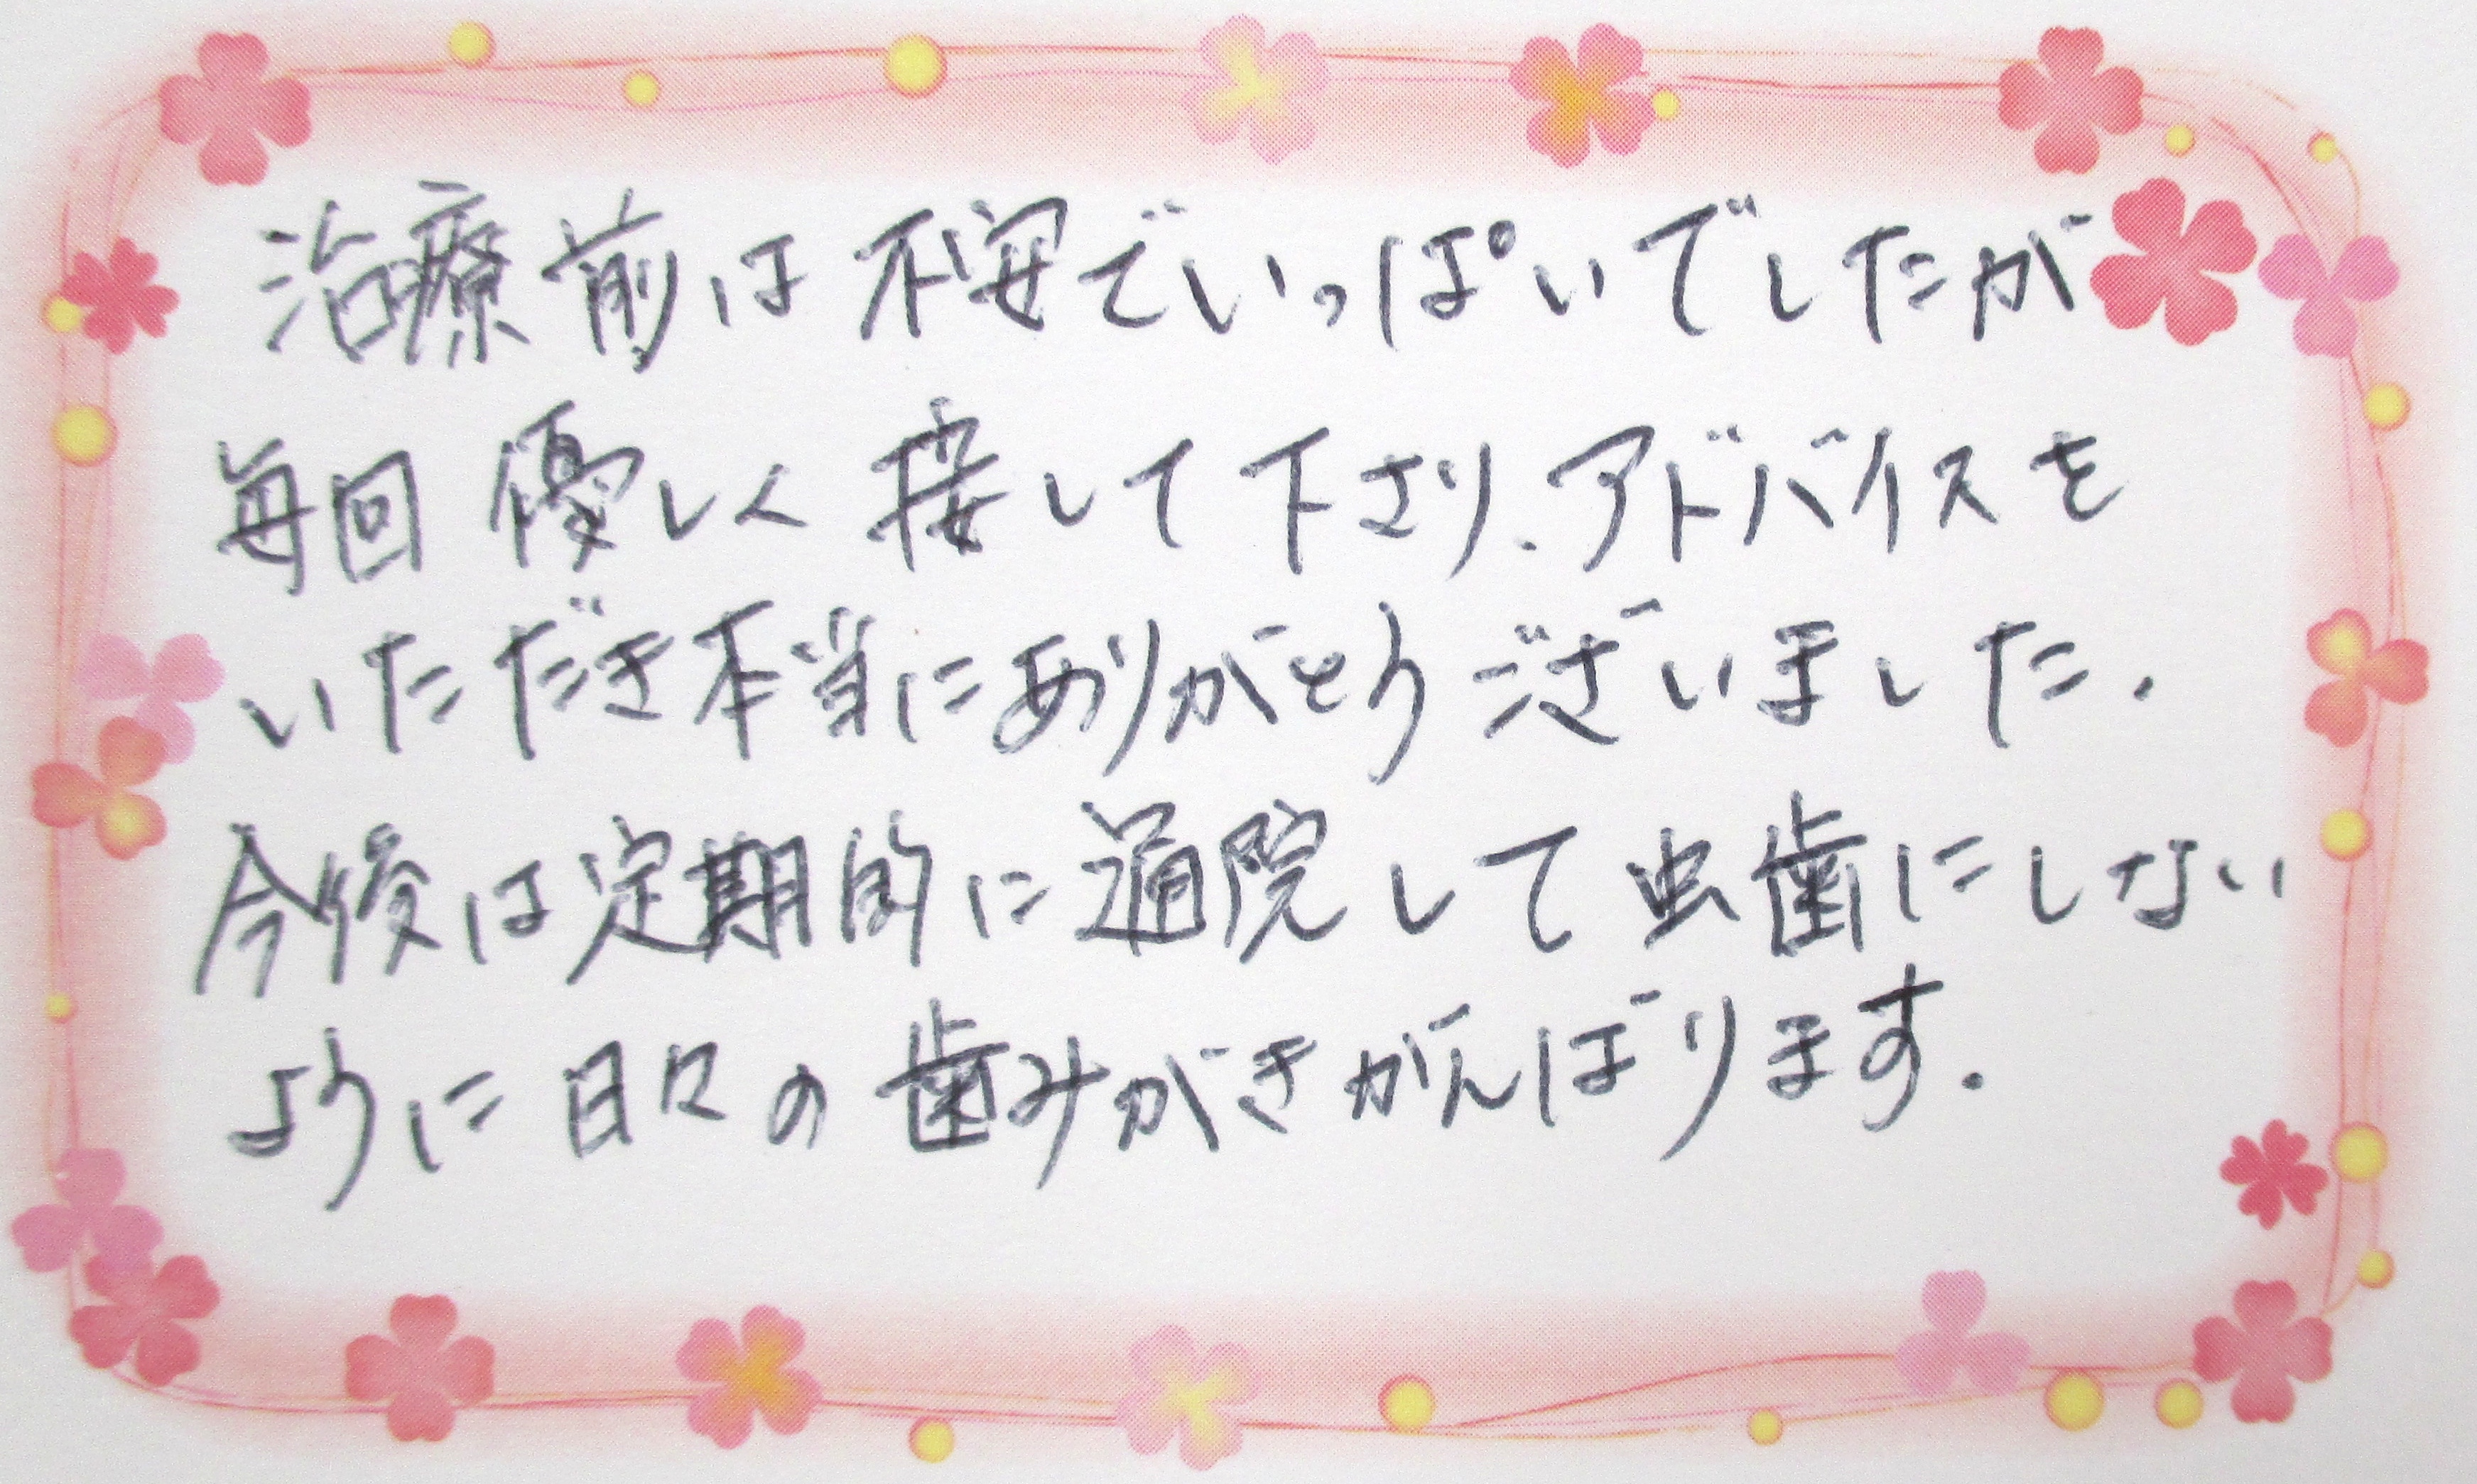 治療前は不安でいっぱいでしたが
毎回優しく接して下さり、アドバイスを
いただき本当にありがとうございました。
今後は定期的に通院して虫歯にしない
ように日々の歯みがきがんばります。